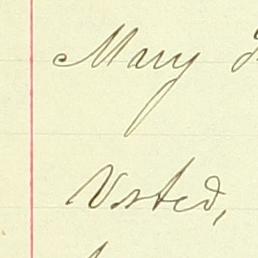 Mary
Voted,